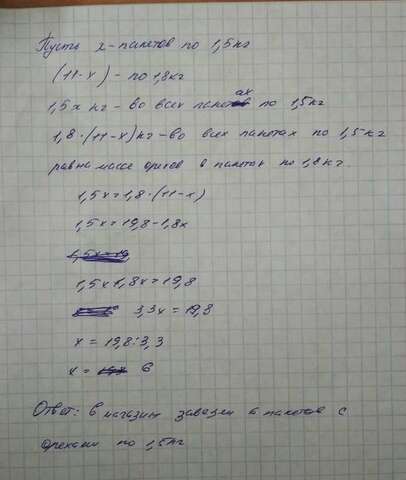 Пусть x - пакетов по 1,5кг
(11-x) - по 1,8кг
1,5x кг - во всех пакетах по 1,5кг
1,8·(11-x)кг - во всех пакетах по 1,5кг
равна массе орехов в пакетах по 1,8кг
1,5x=1,8·(11-x)
1,5x=19,8-1,8x
1,5x=19
1,5x1,8x=19,8
3,3x=19,8
x = 19,8:3,3
x = 6
Ответ: в магазин завезли 6 пакетов с
орехами по 1,5кг